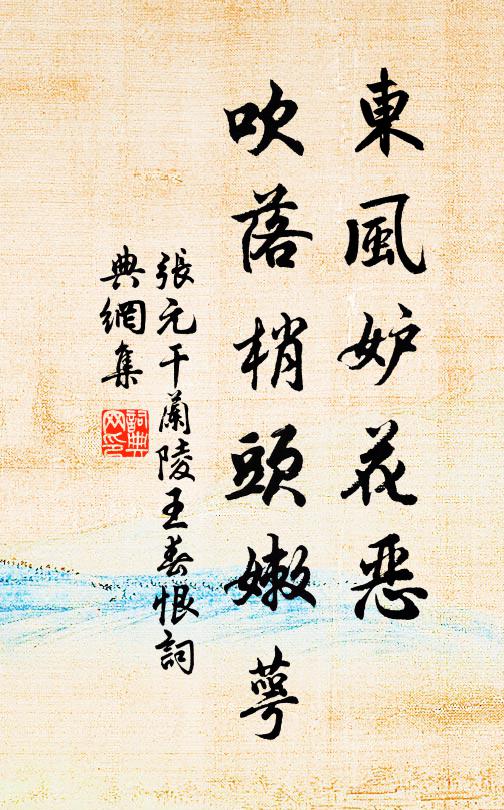 東風妒花惡
吹落梢頭嫩萼
張元干蘭陵王春恨詞
典網集
詞典網印